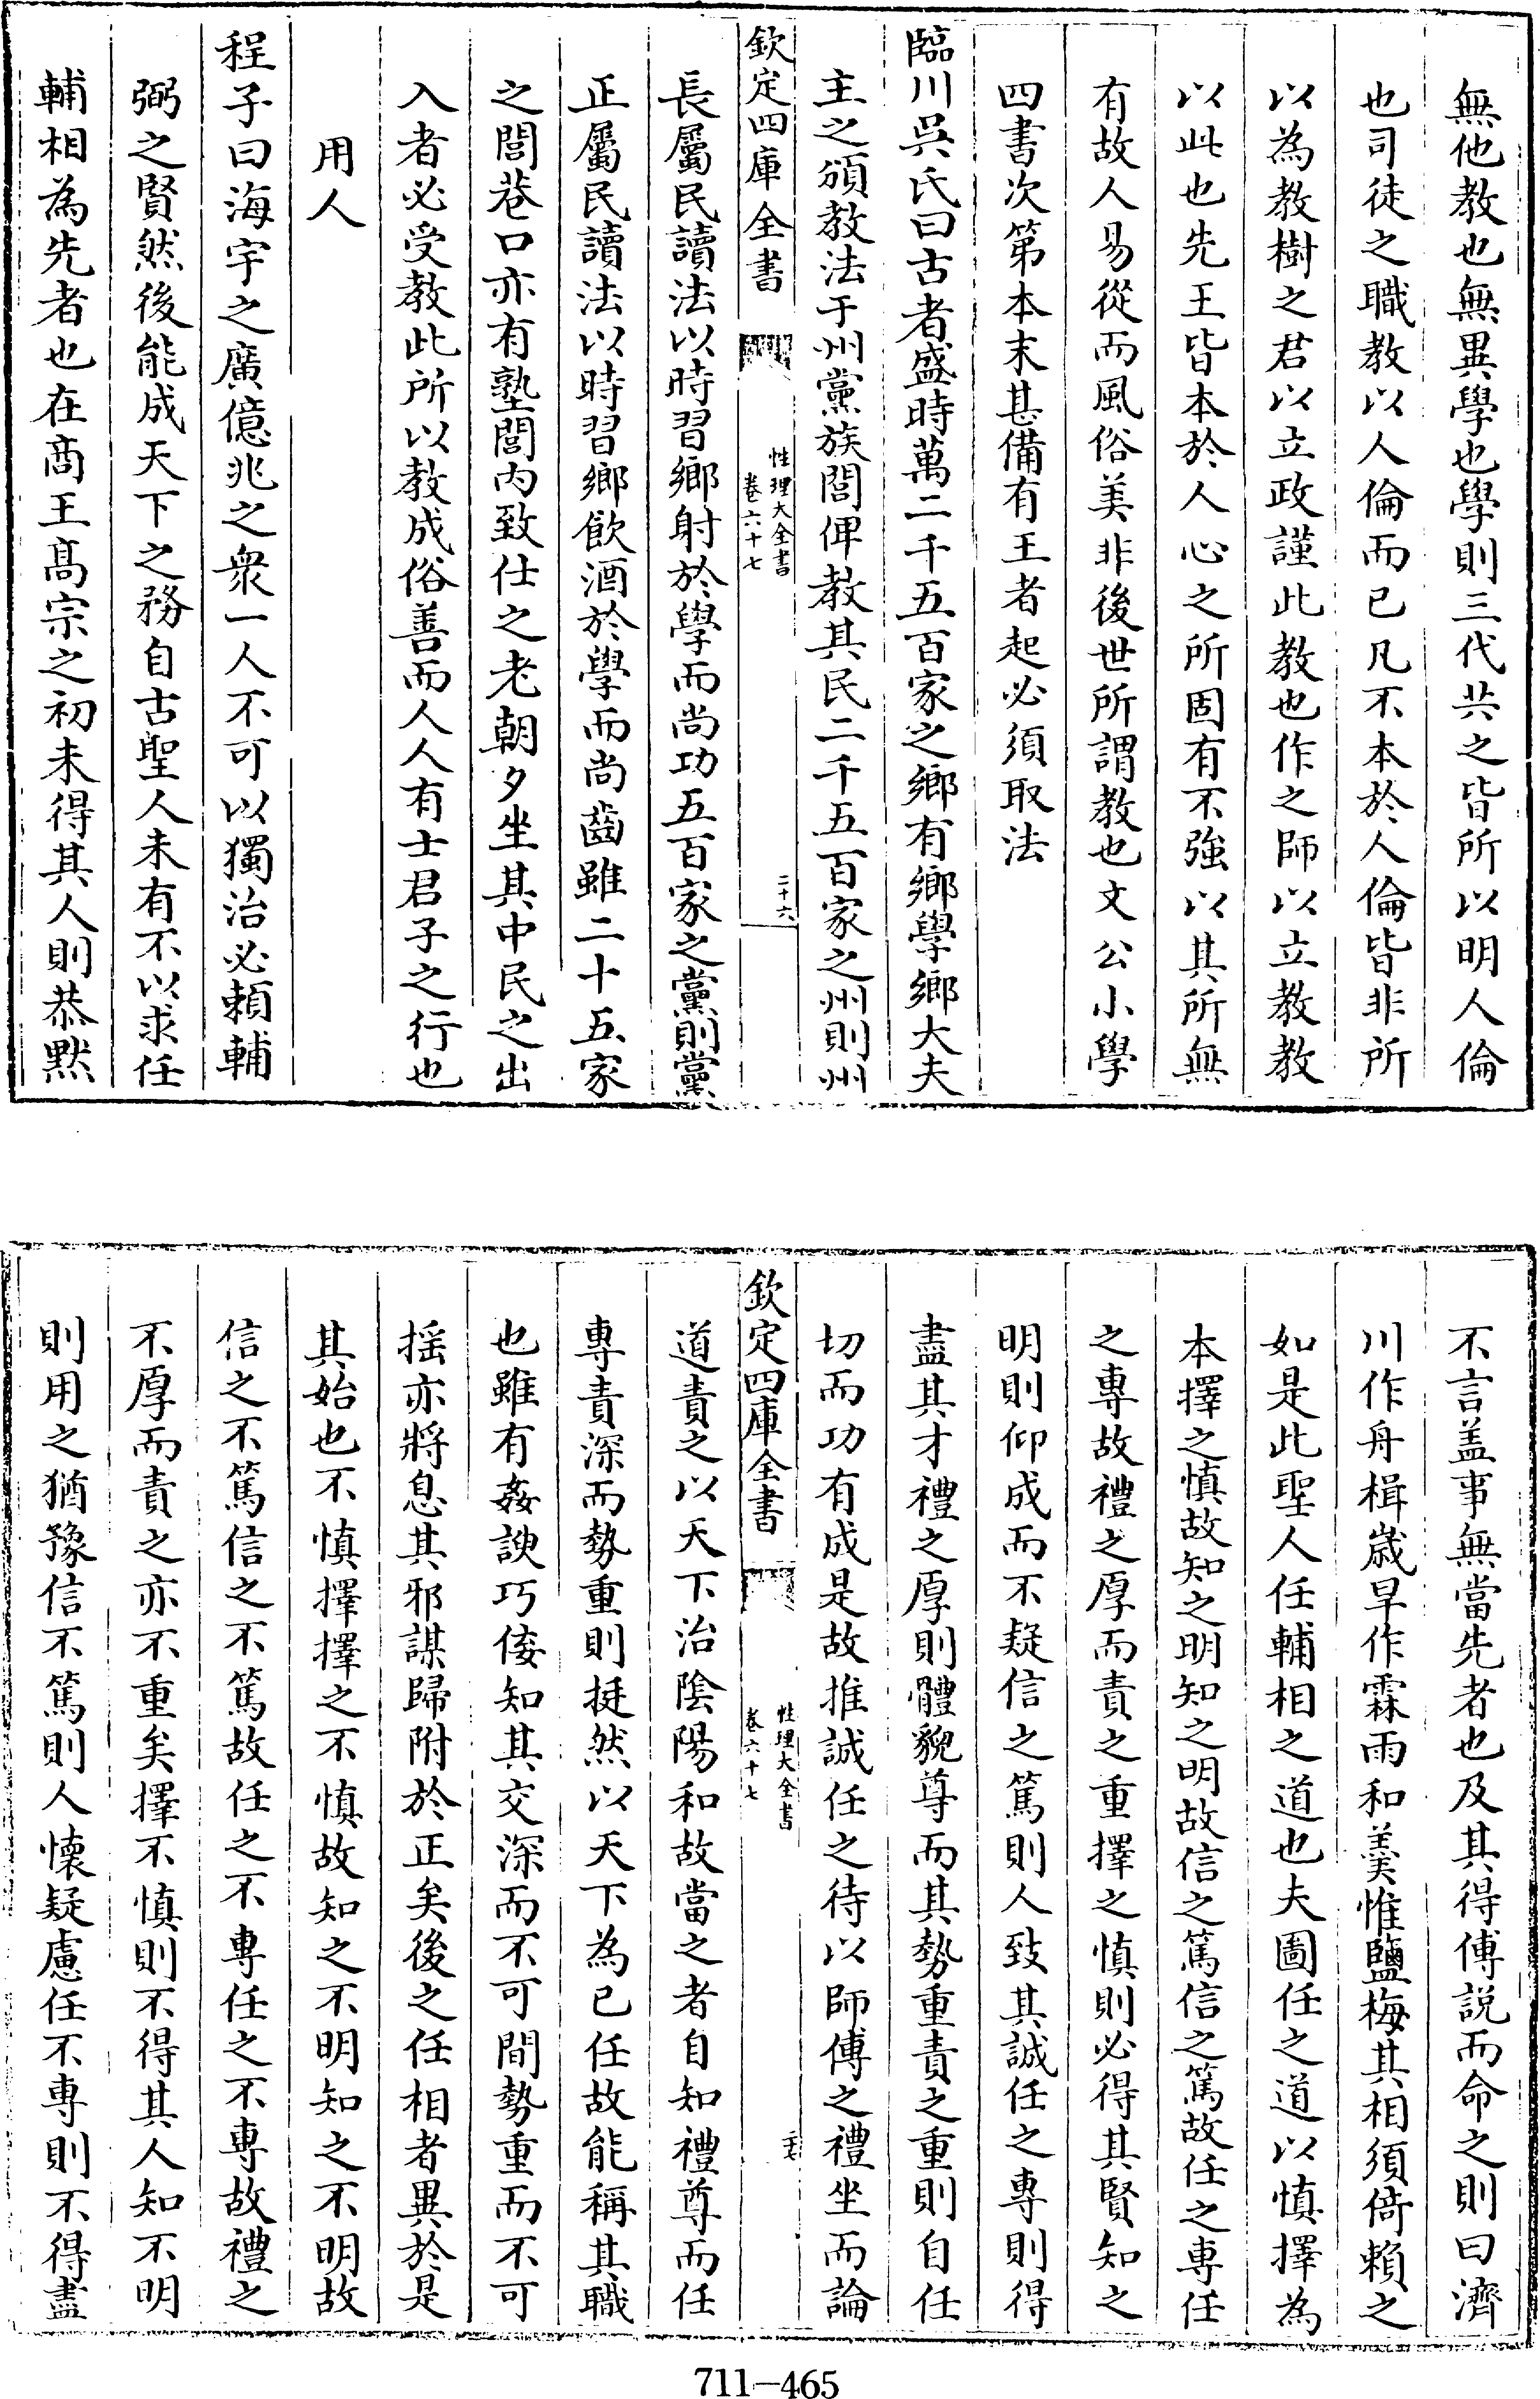 無他教也無異學也學則三代共之皆所以明人倫
也司徒之職教以人倫而已凡不本於人倫皆非所
以為教樹之君以立政謹此教也作之師以立教教
以此也先王皆本於人心之所固有不強以其所無
有故人易從而風俗美非後世所謂教也文公小學
四書次第本末甚備有王者起必須取法
臨川吳氏曰古者盛時萬二千五百家之鄉有鄉學鄉大夫
主之頒教法于州黨族閭俾教其民二千五百家之州則州
欽定四庫全書
性理大全書
卷六十七
二十六
長屬民讀法以時習鄉射於學而尚功五百家之黨則黨
正屬民讀法以時習鄉飲酒於學而尚齒雖二十五家
之閭巷口亦有塾閭內致仕之老朝夕坐其中民之出
入者必受教此所以教成俗善而人人有士君子之行也
用人
程子曰海宇之廣億兆之衆一人不可以獨治必頼輔
弼之賢然後能成天下之務自古聖人未有不以求任
輔相為先者也在商王髙宗之初未得其人則恭黙
不言盖事無當先者也及其得傅説而命之則曰濟
川作舟楫嵗旱作霖雨和羹惟鹽梅其相須倚賴之
如是此聖人任輔相之道也夫圖任之道以慎擇為
本擇之慎故知之明知之明故信之篤信之篤故任之専任
之專故禮之厚而責之重擇之慎則必得其賢知之
明則仰成而不疑信之篤則人致其誠任之專則得
盡其才禮之厚則體貌尊而其勢重責之重則自任
切而功有成是故推誠任之待以師傅之禮坐而論
欽定四庫全書
性理大全書
卷六十七
二十七
道責之以天下治陰陽和故當之者自知禮尊而任
專責深而勢重則挺然以天下為已任故能稱其職
也雖有姦諛巧佞知其交深而不可間勢重而不可
揺亦將息其邪謀歸附於正矣後之任相者異於是
其始也不慎擇擇之不慎故知之不明知之不明故
信之不篤信之不篤故任之不專任之不專故禮之
不厚而責之亦不重矣擇不慎則不得其人知不明
則用之猶豫信不篤則人懷疑慮任不専則不得盡
711—465